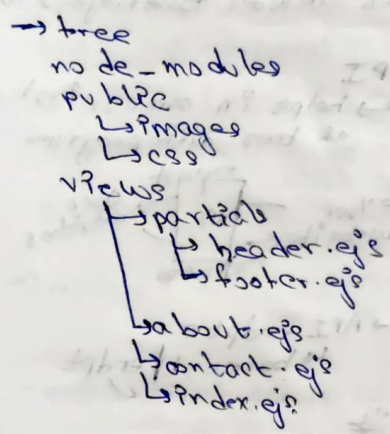 → tree
node_modules
public
↳images
↳css
views
↳partials
↳header.ejs
↳footer.ejs
↳about.ejs
↳contact.ejs
↳index.ejs